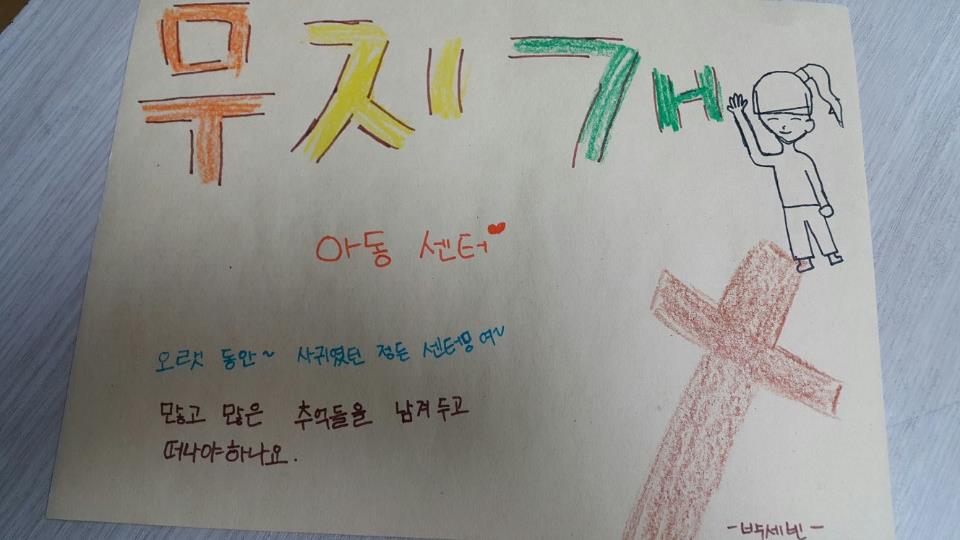 무지개
아동 센터
오랫 동안~ 사귀였던 정든 센터명여~
많고 많은 추억들을 남겨두고
떠나야하나요.
-박세빈-